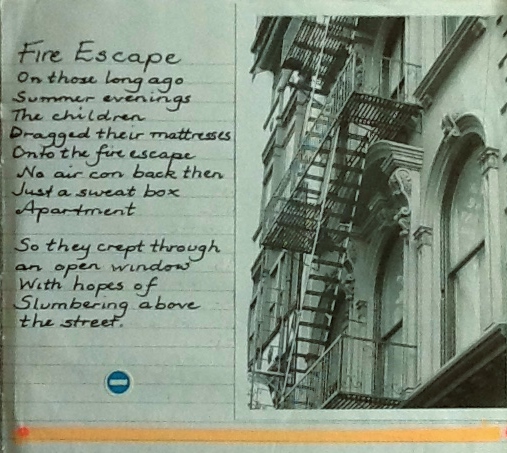 Fire Escape
On those long ago
Summer evenings
The children
Dragged their mattresses
Onto the fire escape
No air con back then
Just a sweat box
Apartment
So they crept through
an open window
With hopes of
Slumbering above
the street.